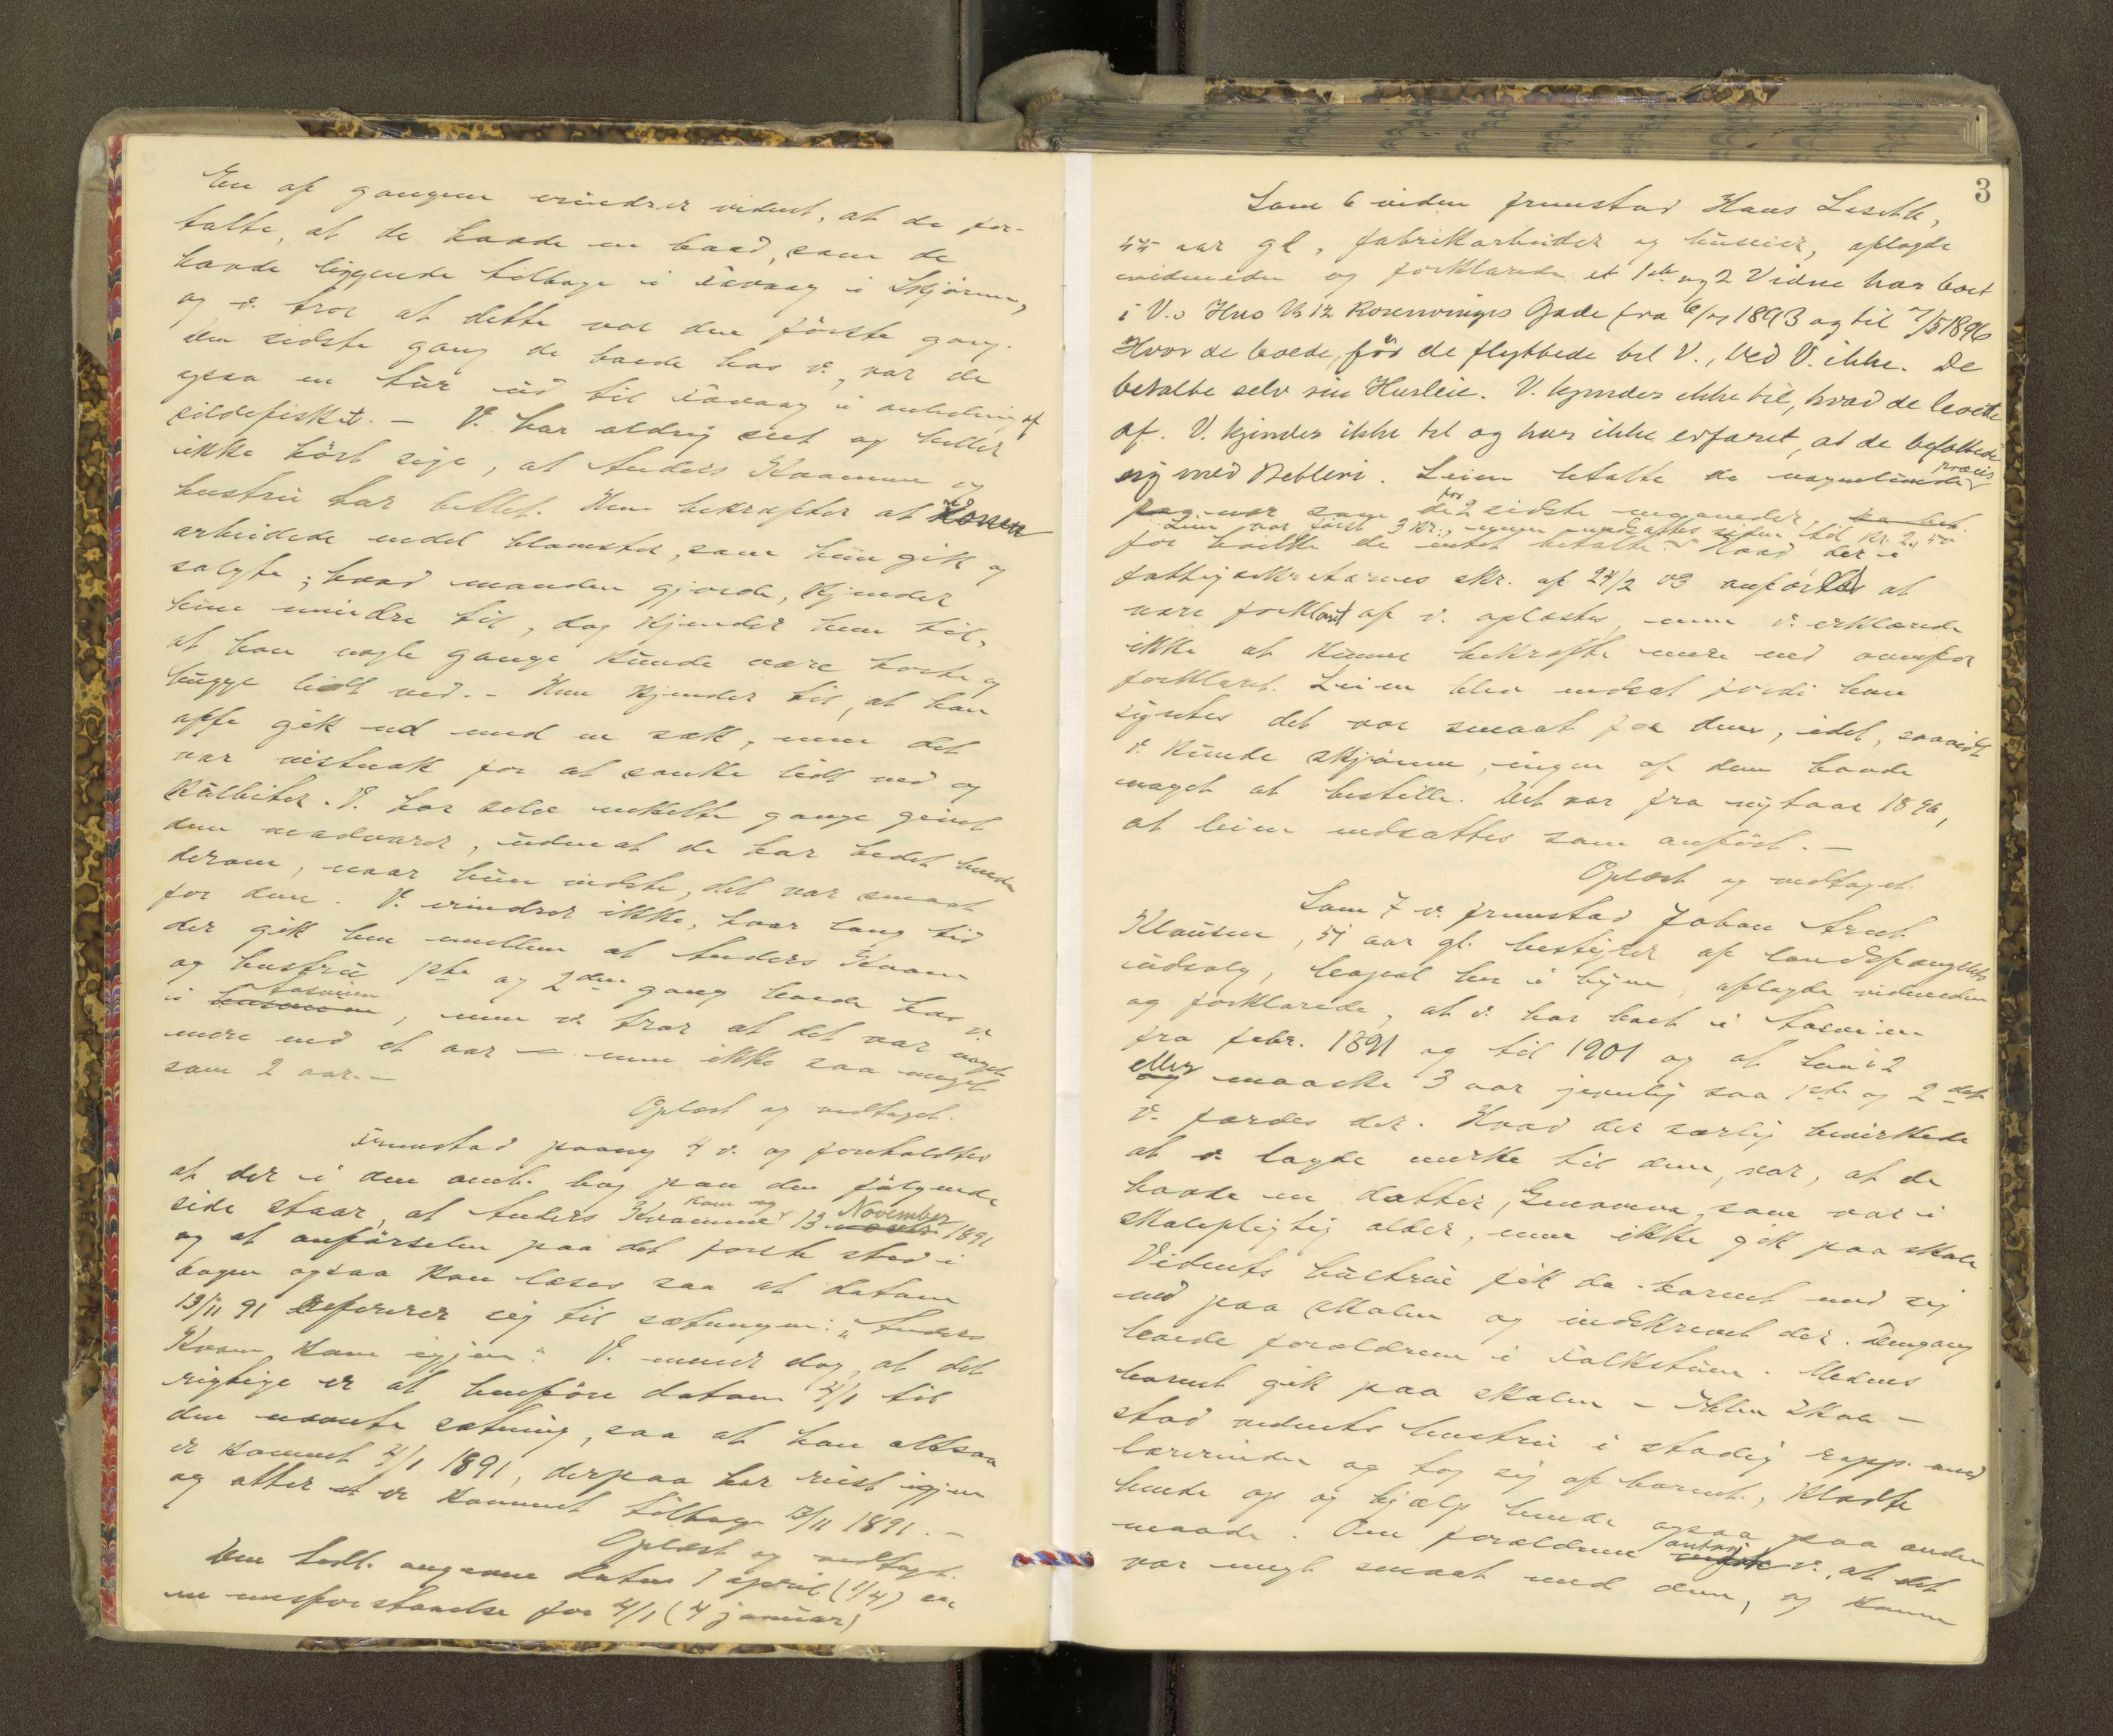 En af gangene erindrer vidnet, at de for-
talte, at de havde en baad, som de
havde liggende tilbage i i Skjørn,
og v. tror at dette var den første gang.
Den sidste gang de boede hos v., var de
ogsaa en tur ud til i anledning af
sildefisket. – V. har aldrig seet og heller
ikke hört sige, at Anders Kvamme og
hustru har betlet. Hun bekræfter at konen
arbeidede endel blomster, som hun gik og
solgte; hvad manden gjorde, kjender
hun mindre til, dog kjender hun til,
at han nogle gange kunde være borte og
hugge lidt ved. – Hun kjender til, at han
ofte gik ud med en sæk, men det
var vistnok for at sanke lidt ved og
kulbiter. V. har selv enkelte gange givet
dem madvarer, uden at de har bedet hende
derom, naar hun vidste, det var smaat
for dem. V. erindrer ikke, hvor lang tid
der gik hen mellem at Anders Kvam
og hustru 1ste og 2den gang boede hos v.
i Aasveien, men v. tror at det var noget
mere end et aar – men ikke saa meget
som 2 aar. –
Oplæst og vedtaget.
Fremstod paany 4 v. og foreholdtes
at der i den omh. bog paa den følgende
side staar, at Anders Kvamme kom og 13 November 1891
og at anførselen paa det første sted i
bogen ogsaa kan læses saa at datoen
13/11 91 refererer sig til sætningen: "Anders
Kvam kom igjen". V. mener dog, at det
rigtige er at henføre datoen 4/1 til
den nævnte sætning, saa at han altsaa
er kommet 4/1 1891, derpaa har reist igjen
og atter er kommet tilbage 13/11 1891. –
Oplæst og vedtaget.
Den tidl. angivne datum 1 april (1/4) er
en misforstaaelse for 4/1 (4 januar)
3
Som 6 viden fremstod Hans
55 aar gl., fabrikarbeider og huseier, aflagde
vidneeden og forklarede at 1ste og 2 Vidne har boet
i V.s Hus No 12 Rosenvinges Gade fra 6/7 1893 og til 7/5 1896
Hvor de boede, før de flyttede til V., ved V. ikke. De
betalte selv sin Husleie. V. kjender ikke til, hvad de levede
af. V. kjender ikke til og har ikke erfaret, at de befattede
sig med Betleri. Leien betalte de nogenlunde præcis
paa nær som for de 2 sidste maaneder,
Leien var först 3 kr., men nedsattes siden til kr. 2,50
for hvilke de intet betalte. Hvad der i
fattigsekretærens skr. af 24/2 03 anføres at
være forklaret af v. oplæstes, men v. erklærede
ikke at kunne bekræfte mere end ovenfor
forklaret. Leien blev nedsat fordi han
syntes det var smaat for dem, idet, saavidt
v. kunde skjønne, ingen af dem havde
noget at bestille. Det var fra nytaar 1896,
at leien nedsattes som anført. –
Oplæst og vedtaget.
Som 7 v. fremstod Johan Arnt
Klausen, 51 aar gl. bestyrer af landsfængslets
udsalg, bopæl her i byen, aflagde vidneeden
og forklarede, at v. har boet i Aasveien
fra febr. 1891 og til 1901 og at han i 2
eller maaske 3 aar jevnlig saa 1ste og 2det
v. færdes der. Hvad der særlig bevirkede
at v. lagde mærke til dem, var, at de
havde en datter, Genoveva, som var i
skolepligtig alder, men ikke gik paa skole
Vidnets hustru fik da barnet med sig
ned paa skolen og indskrevet der. Dengang
boede forældrene i Kalkstuen. Medens
barnet gik paa skolen – Ihlen Skole –
stod vidnets hustru i stadig rapp. med
lærerinden og tog sig af barnet, klædte
hende op og hjalp hende ogsaa paa anden
maade. Om forældrene antog v., at det
var meget smaat med dem, og kunne